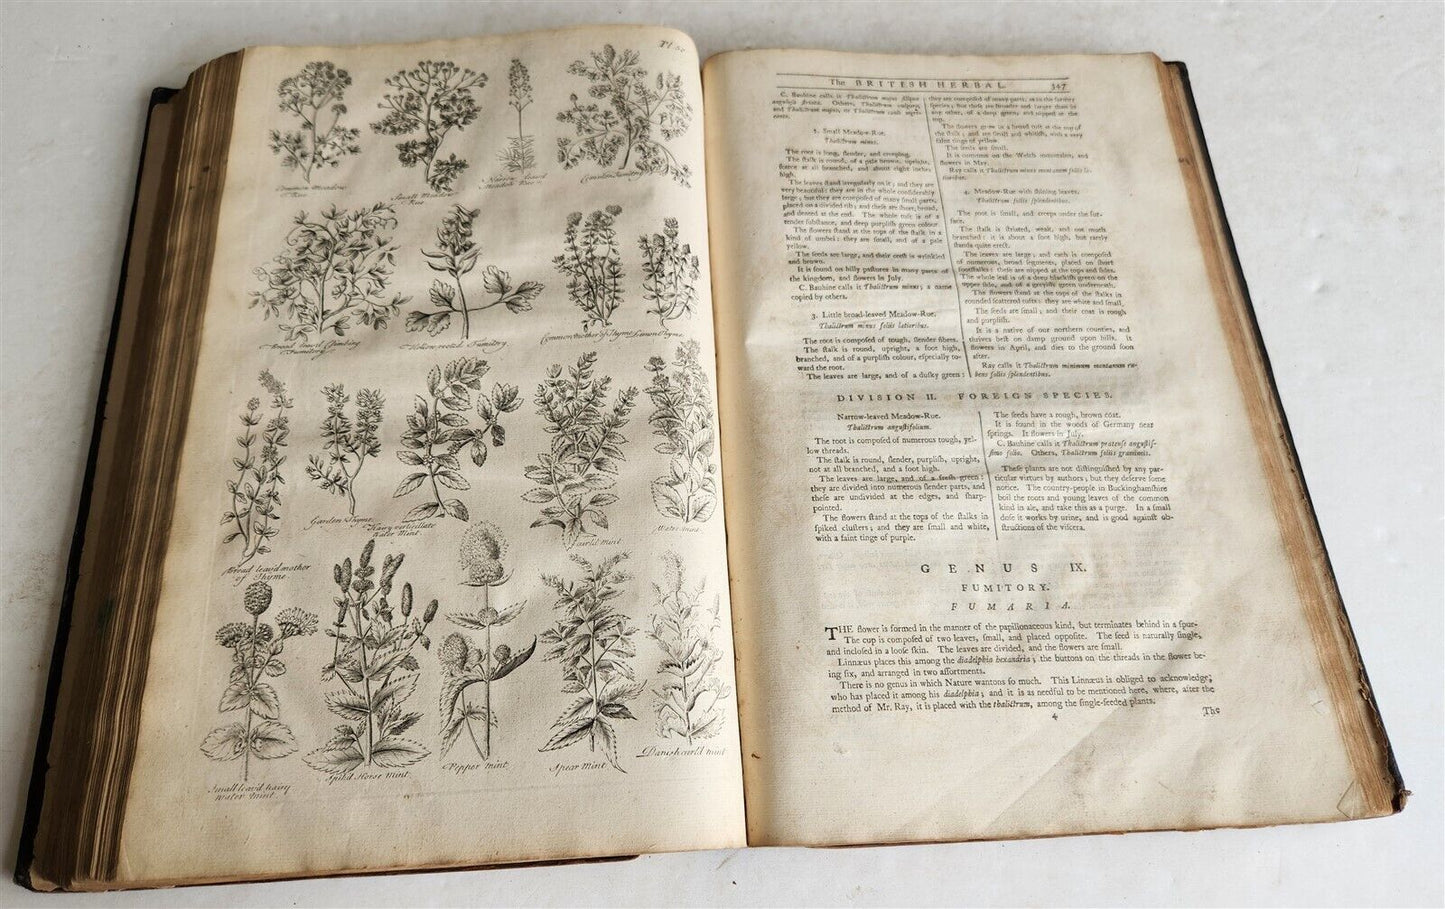 Pl. 50
Common Meadow
Rue
Small Meadow
Rue
Narrow leav'd
Meadow Rue
Common Fumitory
Broad leav'd Climbing
Fumitory
Hollow rooted Fumitory
Common mother of Thyme
Lemon Thyme
Broad leav'd mother
of Thyme
Garden Thyme
Hairy verticillate
Water Mint
Curl'd Mint
Water mint
Small leav'd hairy
water mint
Spik'd Horse Mint
Pepper Mint
Spear Mint
Danish curl'd mint
The BRITISH HERBAL. 347
C. Bauhine calls it Thalictrum majus siliqua
angulosa striata. Others, Thalictrum vulgare,
and Thalictrum majus,
2. Small Meadow-Rue.
Thalictrum minus.
The root is long, slender, and creeping.
The stalk is round, of a pale brown, upright,
scarce at all branched, and about eight inches
high.
The leaves stand irregularly on it; and they are
very beautiful: they are in the whole considerably
large; but they are composed of many small parts,
placed on a divided rib; and these are short, broad,
and dented at the end. The whole tuft is of a
tender substance, and deep purplish green colour.
The flowers stand at the tops of the stalk in a
kind of umbel: they are small, and of a pale
yellow.
The seeds are large, and their coat is wrinkled
and brown.
It is found on hilly pastures in many parts of
the kingdom, and flowers in July.
C. Bauhine calls it Thalictrum minus; a name
copied by others.
3. Little broad-leaved Meadow-Rue.
Thalictrum minus foliis latioribus.
The root is composed of tough, slender fibres.
The stalk is round, upright, a foot high,
branched, and of a purplish colour, especially to-
ward the root.
The leaves are large, and of a dusky green:
they are composed of many parts, as in the former
species; but these are broader and larger than in
any other, of a deep green, and nipped at the
top.
The flowers grow in a broad tuft at the top of
the stalk; and are small and whitish, with a very
faint tinge of yellow.
The seeds are small.
It is common on the Welch mountains, and
flowers in May.
Ray calls it Thalictrum minus montanum foliis la-
tioribus.
4. Meadow-Rue with shining leaves.
Thalictrum foliis splendentibus.
The root is small, and creeps under the sur-
face.
The stalk is striated, weak, and not much
branched: it is about a foot high, but rarely
stands quite erect.
The leaves are large; and each is composed
of numerous, broad segments, placed on short
footstalks: these are nipped at the tops and sides.
The whole leaf is of a deep blackish green on the
upper side, and of a greyish green underneath.
The flowers stand at the tops of the stalks in
rounded scattered tufts: they are white and small.
The seeds are small; and their coat is rough
and purplish.
It is a native of our northern counties, and
thrives best on damp ground upon hills. It
flowers in April, and dies to the ground soon
after.
Ray calls it Thalictrum minimum montanum ru-
bens foliis splendentibus.
DIVISION II. FOREIGN SPECIES.
Narrow-leaved Meadow-Rue.
Thalictrum angustifolium.
The root is composed of numerous tough, yel-
low threads.
The stalk is round, slender, purplish, upright,
not at all branched, and a foot high.
The leaves are large, and of a fresh green:
they are divided into numerous slender parts, and
these are undivided at the edges, and sharp-
pointed.
The flowers stand at the tops of the stalks in
spiked clusters; and they are small and white,
with a faint tinge of purple.
The seeds have a rough, brown coat.
It is found in the woods of Germany near
springs. It flowers in July.
C. Bauhine calls it Thalictrum pratense angustis-
simo folio. Others, Thalictrum foliis gramineis.
These plants are not distinguished by any par-
ticular virtues by authors; but they deserve some
notice. The country-people in Buckinghamshire
boil the roots and young leaves of the common
kind in ale, and take this as a purge. In a small
dose it works by urine, and is good against ob-
structions of the viscera.
GENUS IX.
FUMITORY.
FUMARIA.
THE flower is formed in the manner of the papilionaceous kind, but terminates behind in a spur.
The cup is composed of two leaves, small, and placed opposite. The seed is naturally single,
and inclosed in a loose skin. The leaves are divided, and the flowers are small.
Linnæus places this among the diadelphia hexandria; the buttons on the threads in the flower be-
ing six, and arranged in two assortments.
There is no genus in which Nature wantons so much. This Linnæus is obliged to acknowledge,
who has placed it among his diadelphia; and it is as needful to be mentioned here, where, after the
method of Mr. Ray, it is placed with the thalictrum, among the single-seeded plants.
4 The